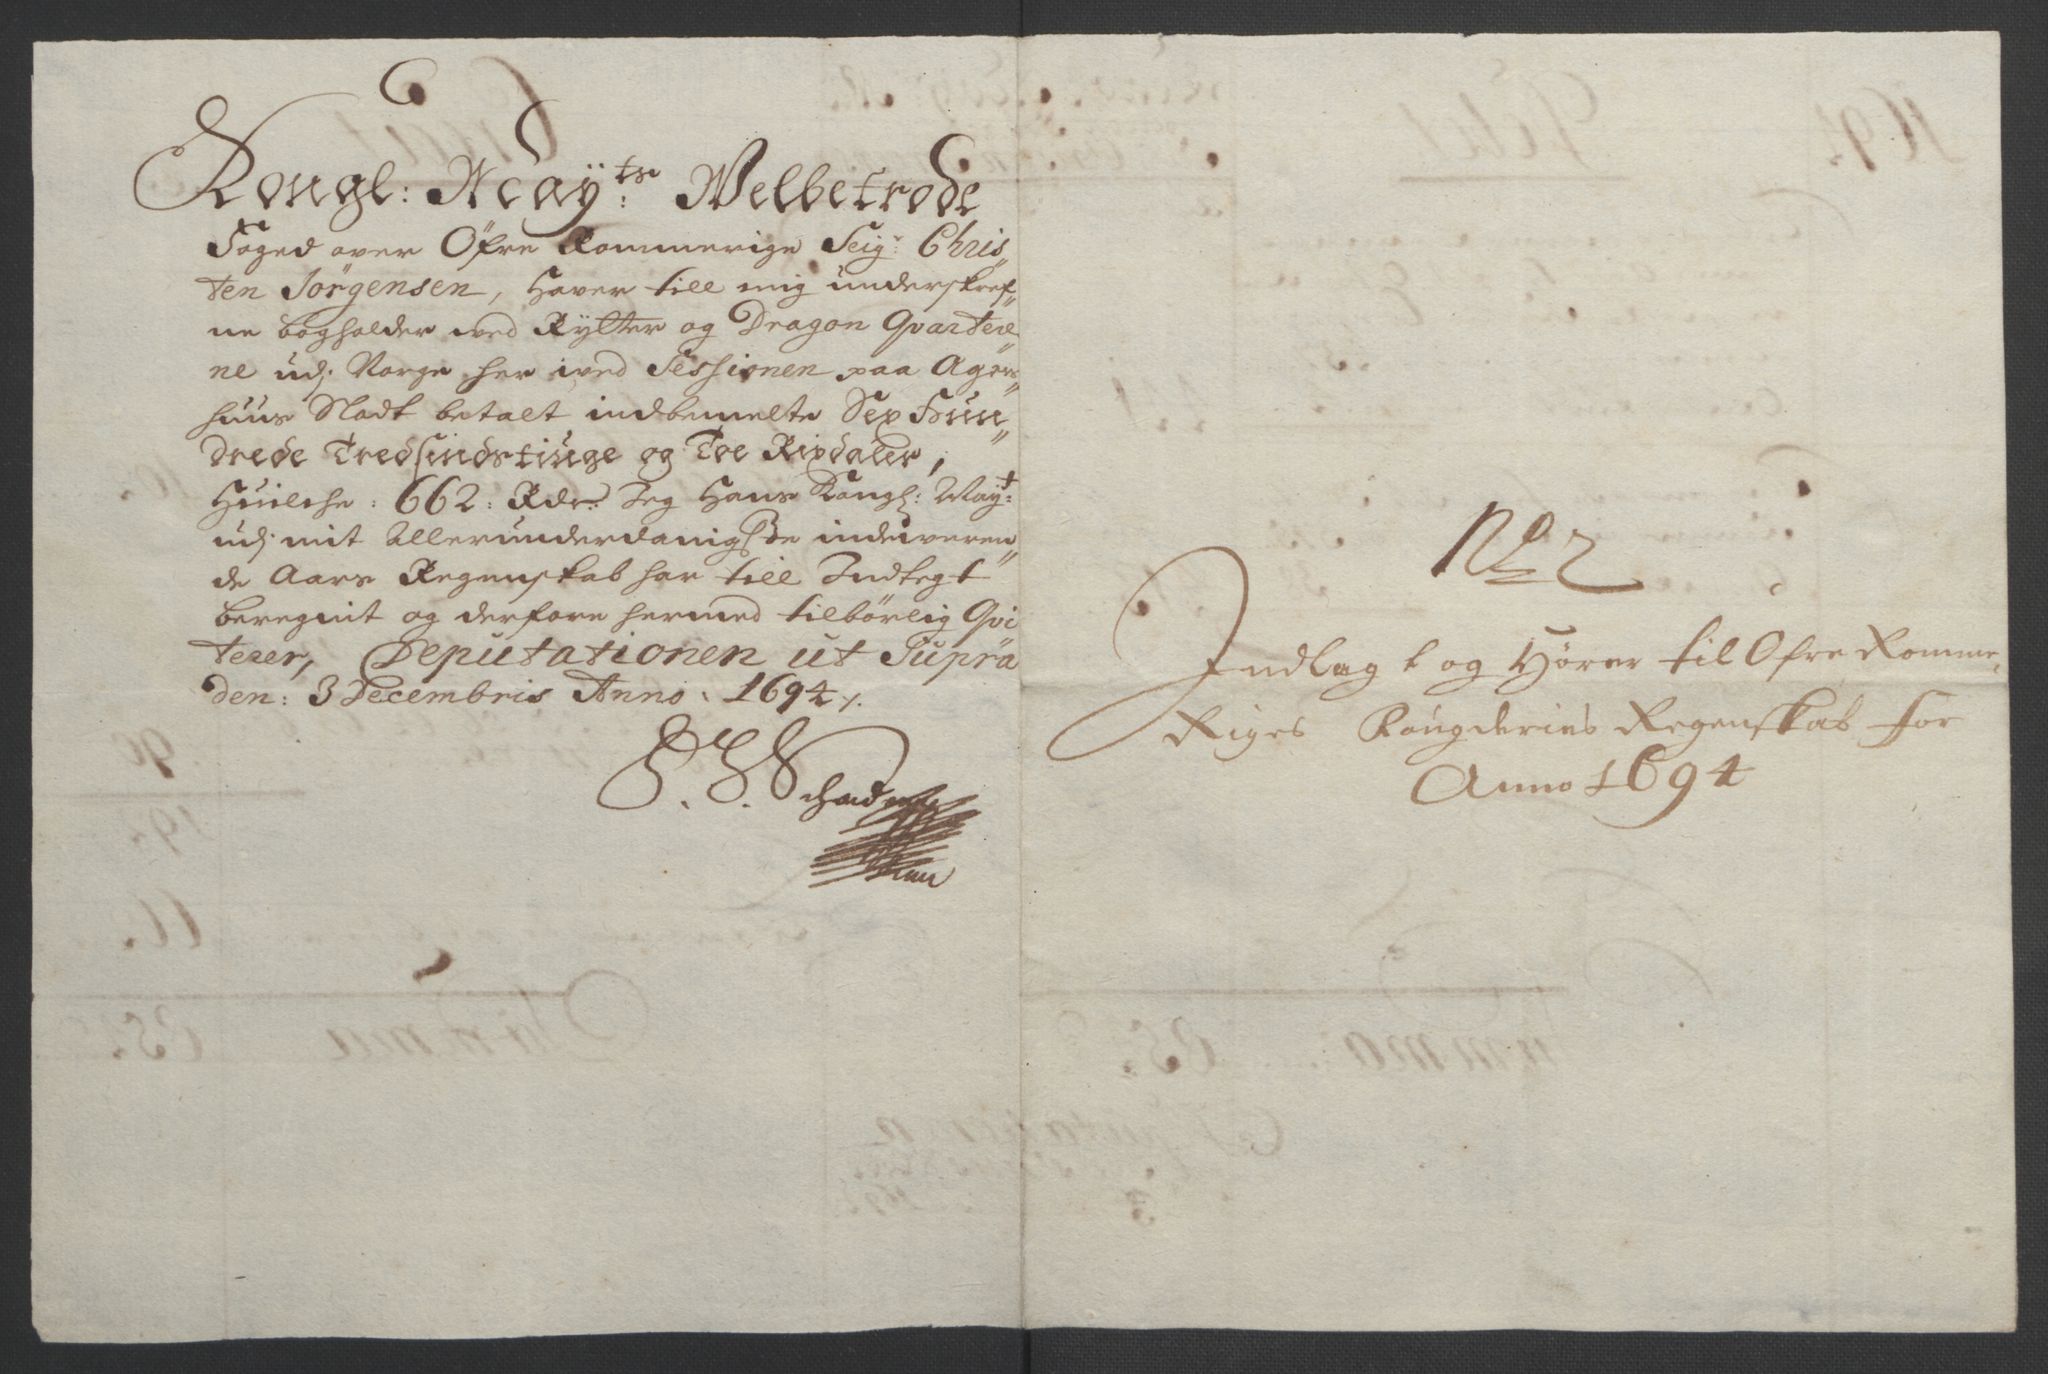 Kongl: Maÿ:ts Welbetrode
Foged over Öfre Rommerige Seig: Chris„
ten Jörgensen, Hafver till mig underskref„
ne bogholder wed Rÿtter og Dragon Qvartere„
ne udj Norge her wed Sessionen paa Agers„
huus Slodt betalt indbemelte Sex Hun„
drede Tredsindstiuge og Toe Rixdaler,
Huilche : 662: Rdr: Jeg Hans Kongl: Maÿt:
udj mit Allerunderdanigste indeweren„
de Aars Regenskab har till Indtegt
beregnit og derfore hermed tilbörlig Qvi
terer, Deputationen ut Supra
den: 3 Decembris Anno : 1694 /.
No 2
Indlagt og Hörer til Ofre Romme„
Riges Regenskab for
Anno 1694
Summa